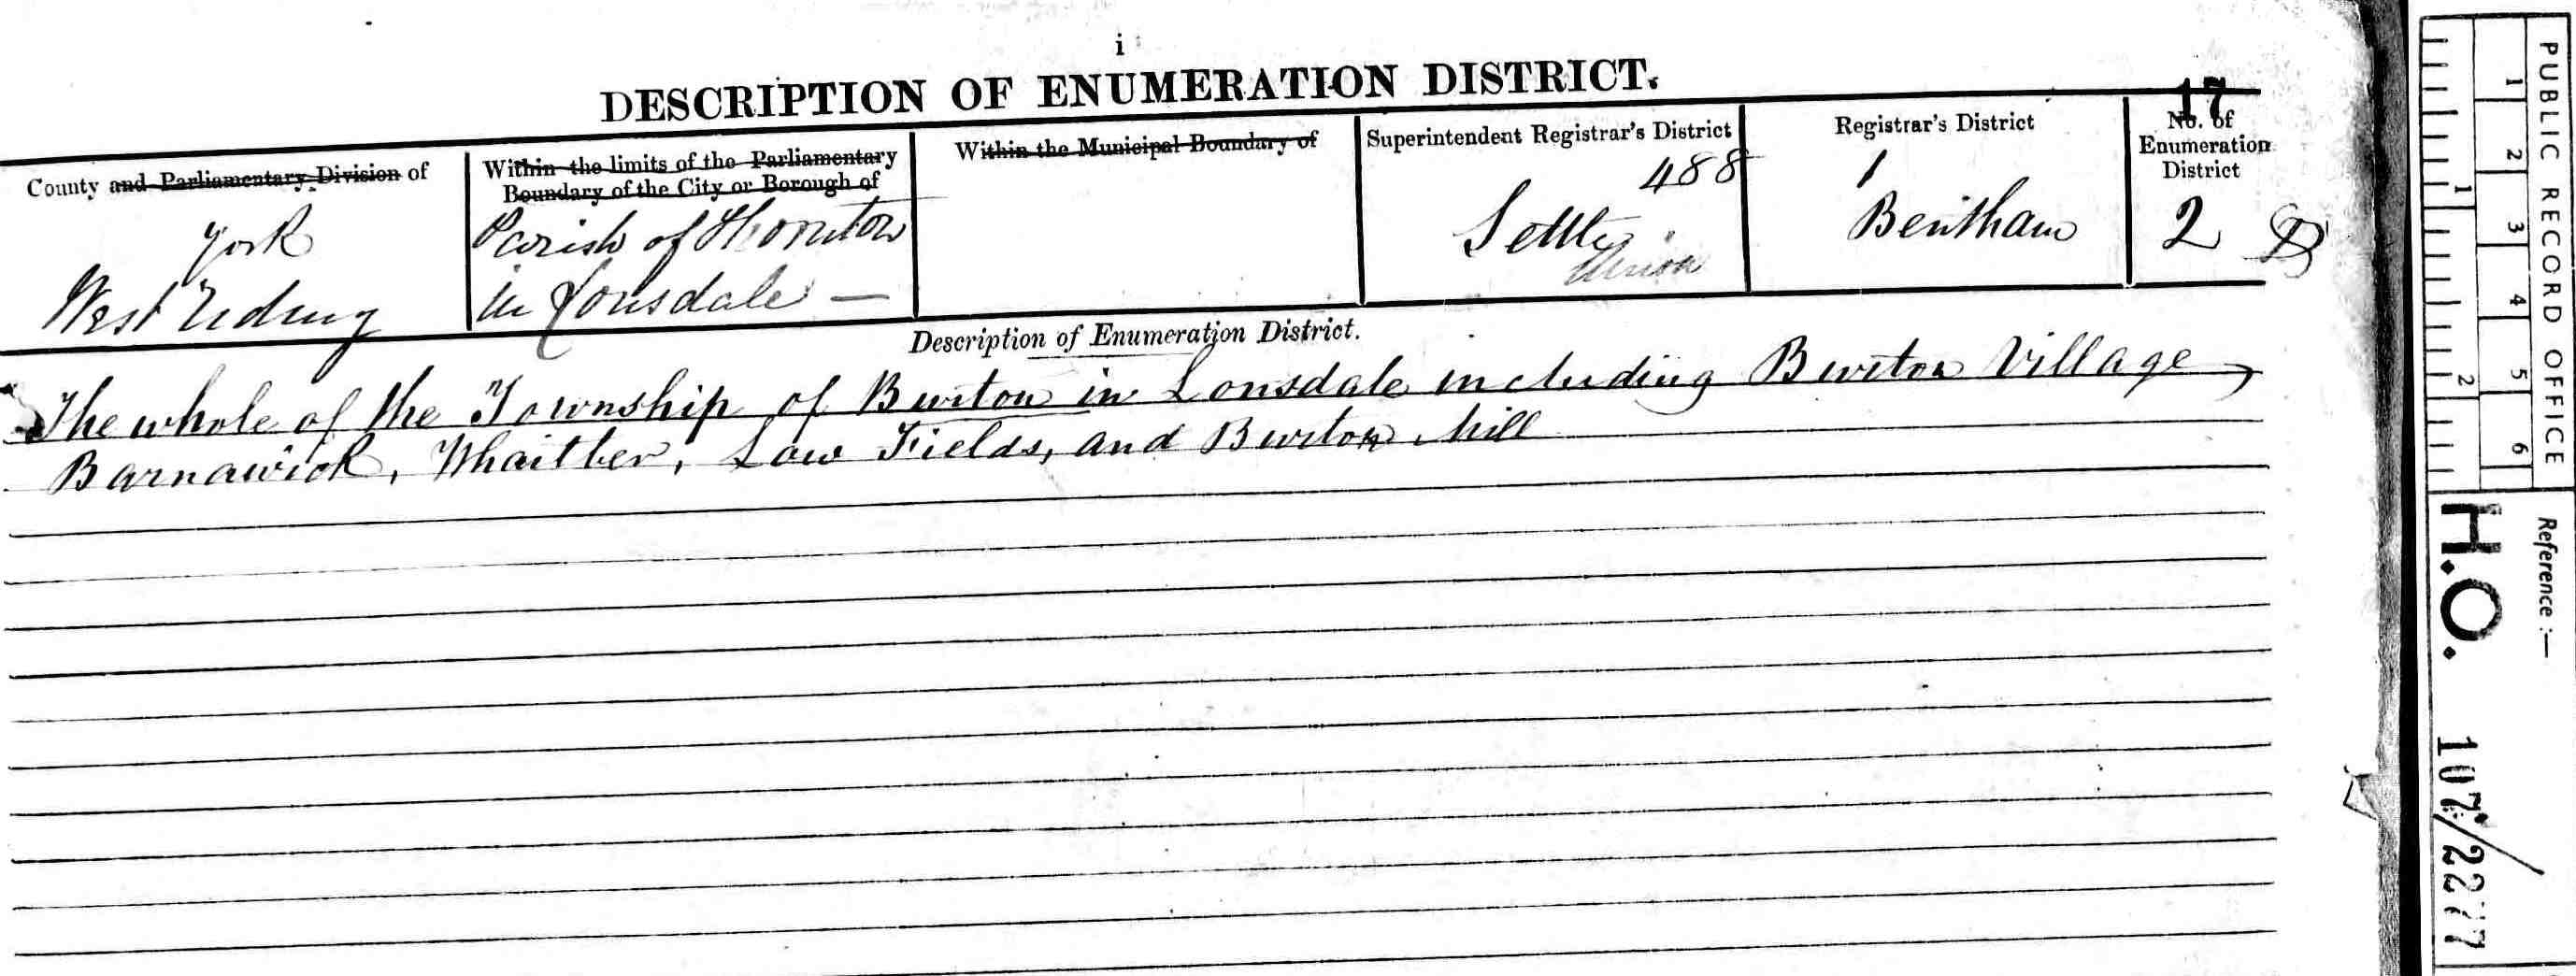 i
DESCRIPTION OF ENUMERATION DISTRICT.
17
County and Parliamentary Division of
York
West Riding
Within the limits of the Parliamentary
Boundary of the City or Borough of
Parish of Thornton
in Lonsdale —
Within the Municipal Boundary of
Superintendent Registrar's District
488
Settle
Union
Registrar's District
1
Bentham
No. of
Enumeration
District
2
Description of Enumeration District.
The whole of the Township of Burton in Lonsdale including Burton Village,
Barnawick, Whaitber, Low Fields, and Burton Mill
PUBLIC RECORD OFFICE
1 2 3 4 5 6
1 2
Reference :—
H.O. 107/2277